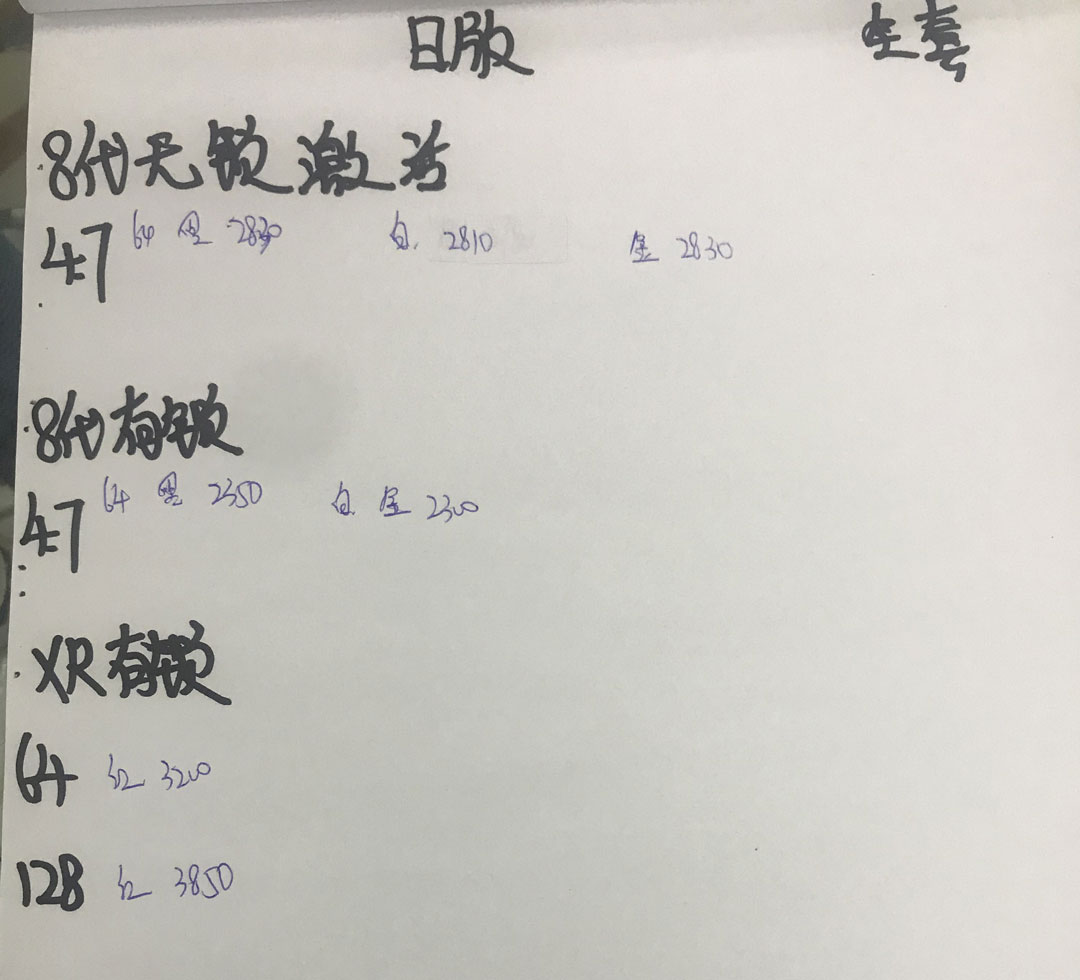 日版 全套
8代无锁激活
4.7 64 黑 2830 白. 2810 金 2830
8代有锁
4.7 64 黑 2350 白. 金 2300
XR有锁
64 红 3200
128 红 3850